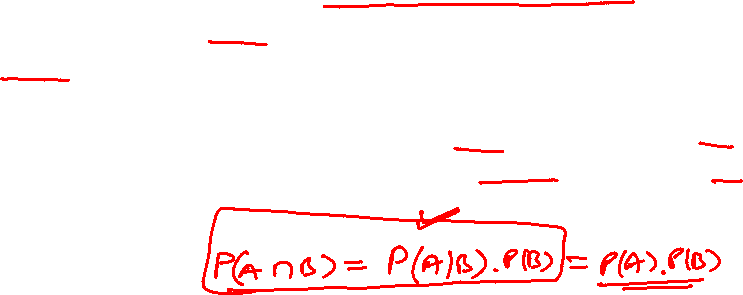 P(A∩B) = P(A|B).P(B) = P(A).P(B)